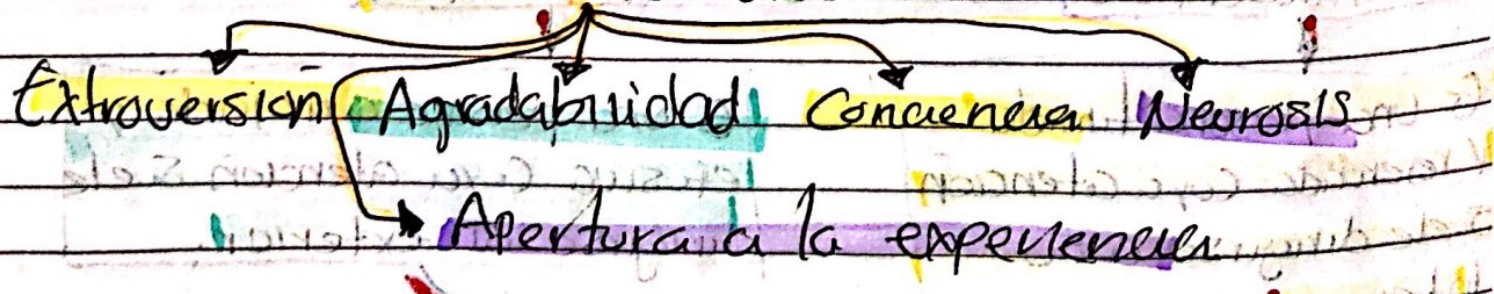 Extroversion Agradabilidad Conciencia Neurosis
Apertura a la experiencia